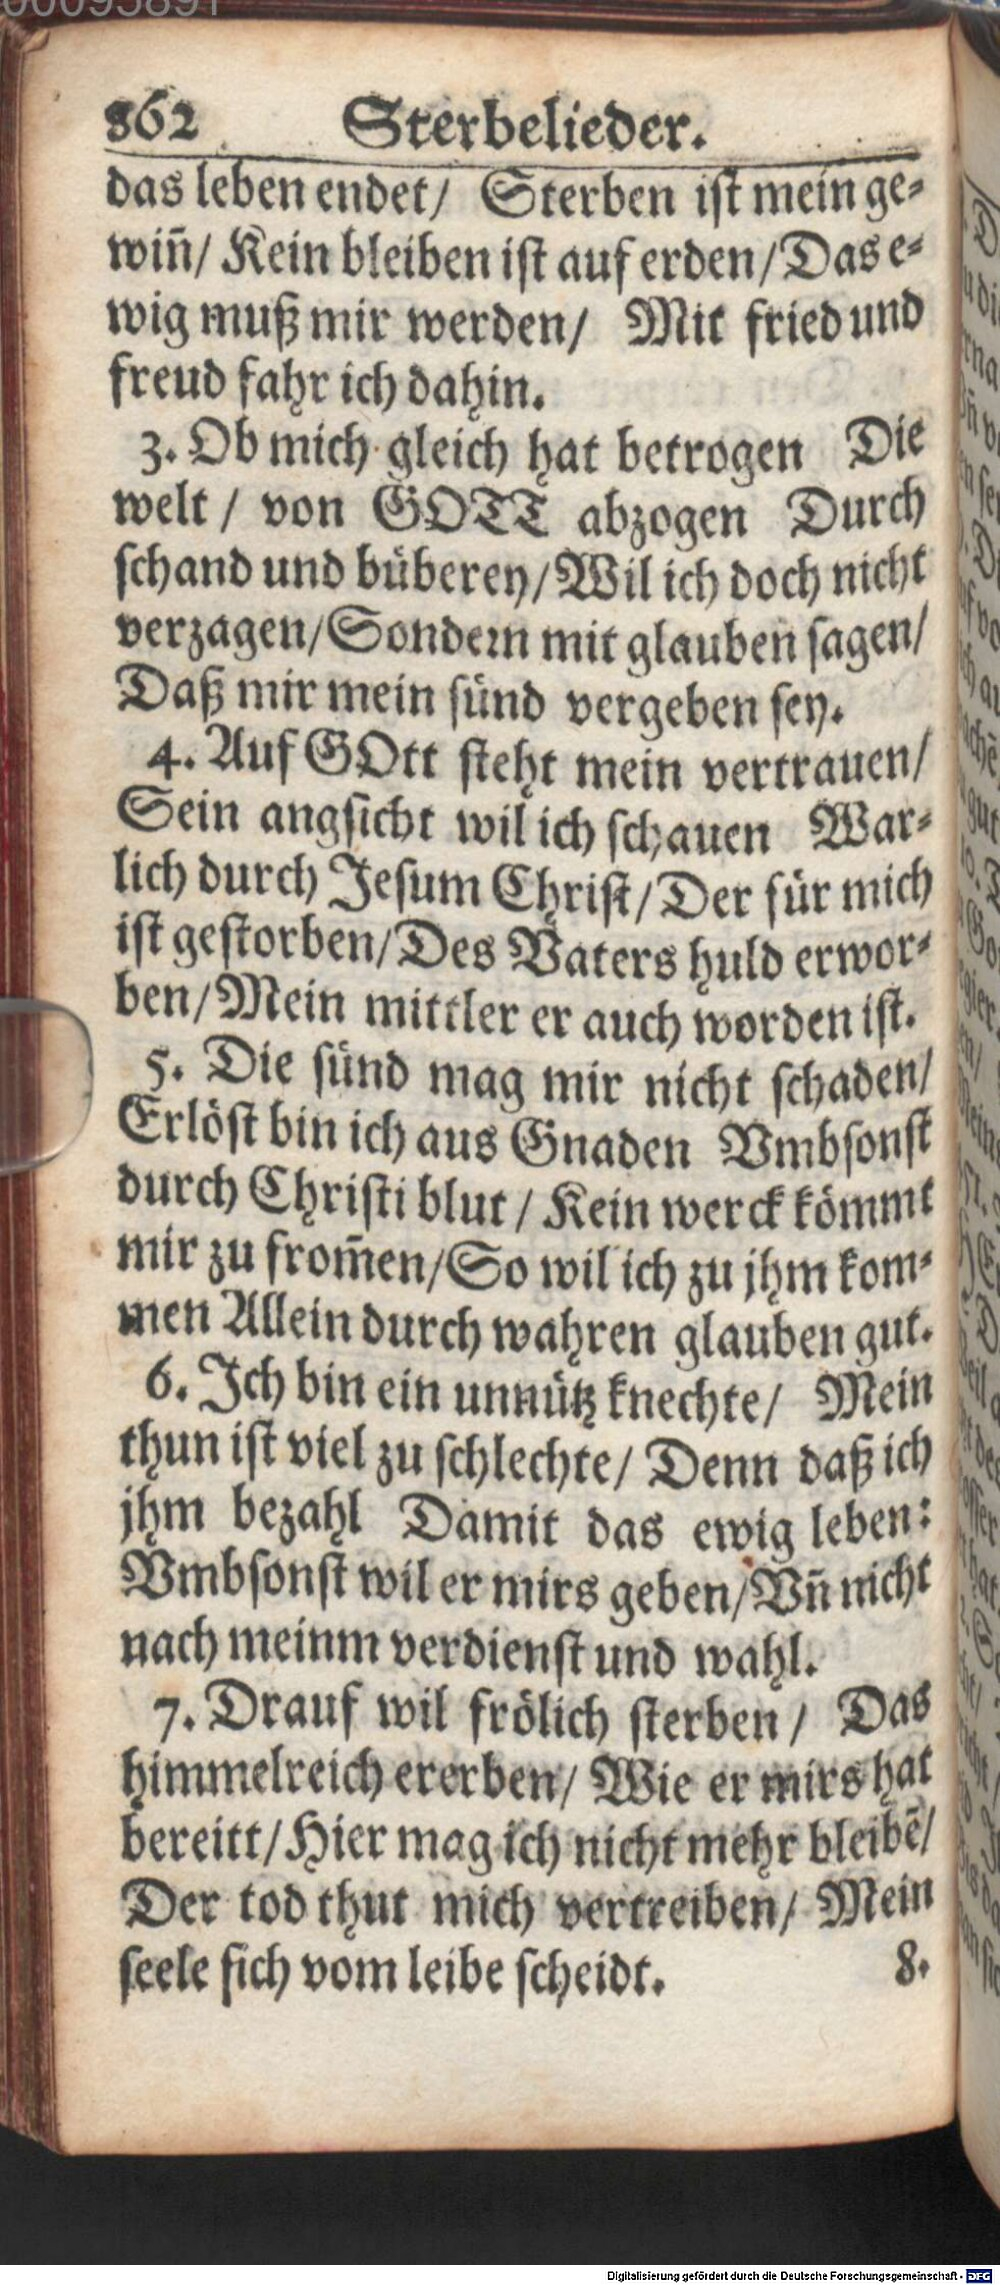 00095891
862 Sterbelieder.
das leben endet/ Sterben ist mein ge-
wiñ/ Kein bleiben ist auf erden/ Das e-
wig muß mir werden/ Mit fried und
freud fahr ich dahin.
3. Ob mich gleich hat betrogen Die
welt / von GOTT abzogen Durch
schand und büberey/ Wil ich doch nicht
verzagen/ Sondern mit glauben sagen/
Daß mir mein sünd vergeben sey.
4. Auf GOtt steht mein vertrauen/
Sein angsicht wil ich schauen War-
lich durch Jesum Christ/ Der für mich
ist gestorben/ Des Vaters huld erwor-
ben/ Mein mittler er auch worden ist.
5. Die sünd mag mir nicht schaden/
Erlöst bin ich aus Gnaden Vmbsonst
durch Christi blut / Kein werck kömmt
mir zu from̃en/ So wil ich zu jhm kom-
men Allein durch wahren glauben gut.
6. Ich bin ein unnütz knechte/ Mein
thun ist viel zu schlechte/ Denn daß ich
jhm bezahl Damit das ewig leben:
Vmbsonst wil er mirs geben/ Vñ nicht
nach meinm verdienst und wahl.
7. Drauf wil frölich sterben / Das
himmelreich ererben/ Wie er mirs hat
bereitt/ Hier mag ich nicht mehr bleibẽ/
Der tod thut mich vertreiben/ Mein
seele sich vom leibe scheidt. 8.
Digitalisierung gefördert durch die Deutsche Forschungsgemeinschaft - DFG